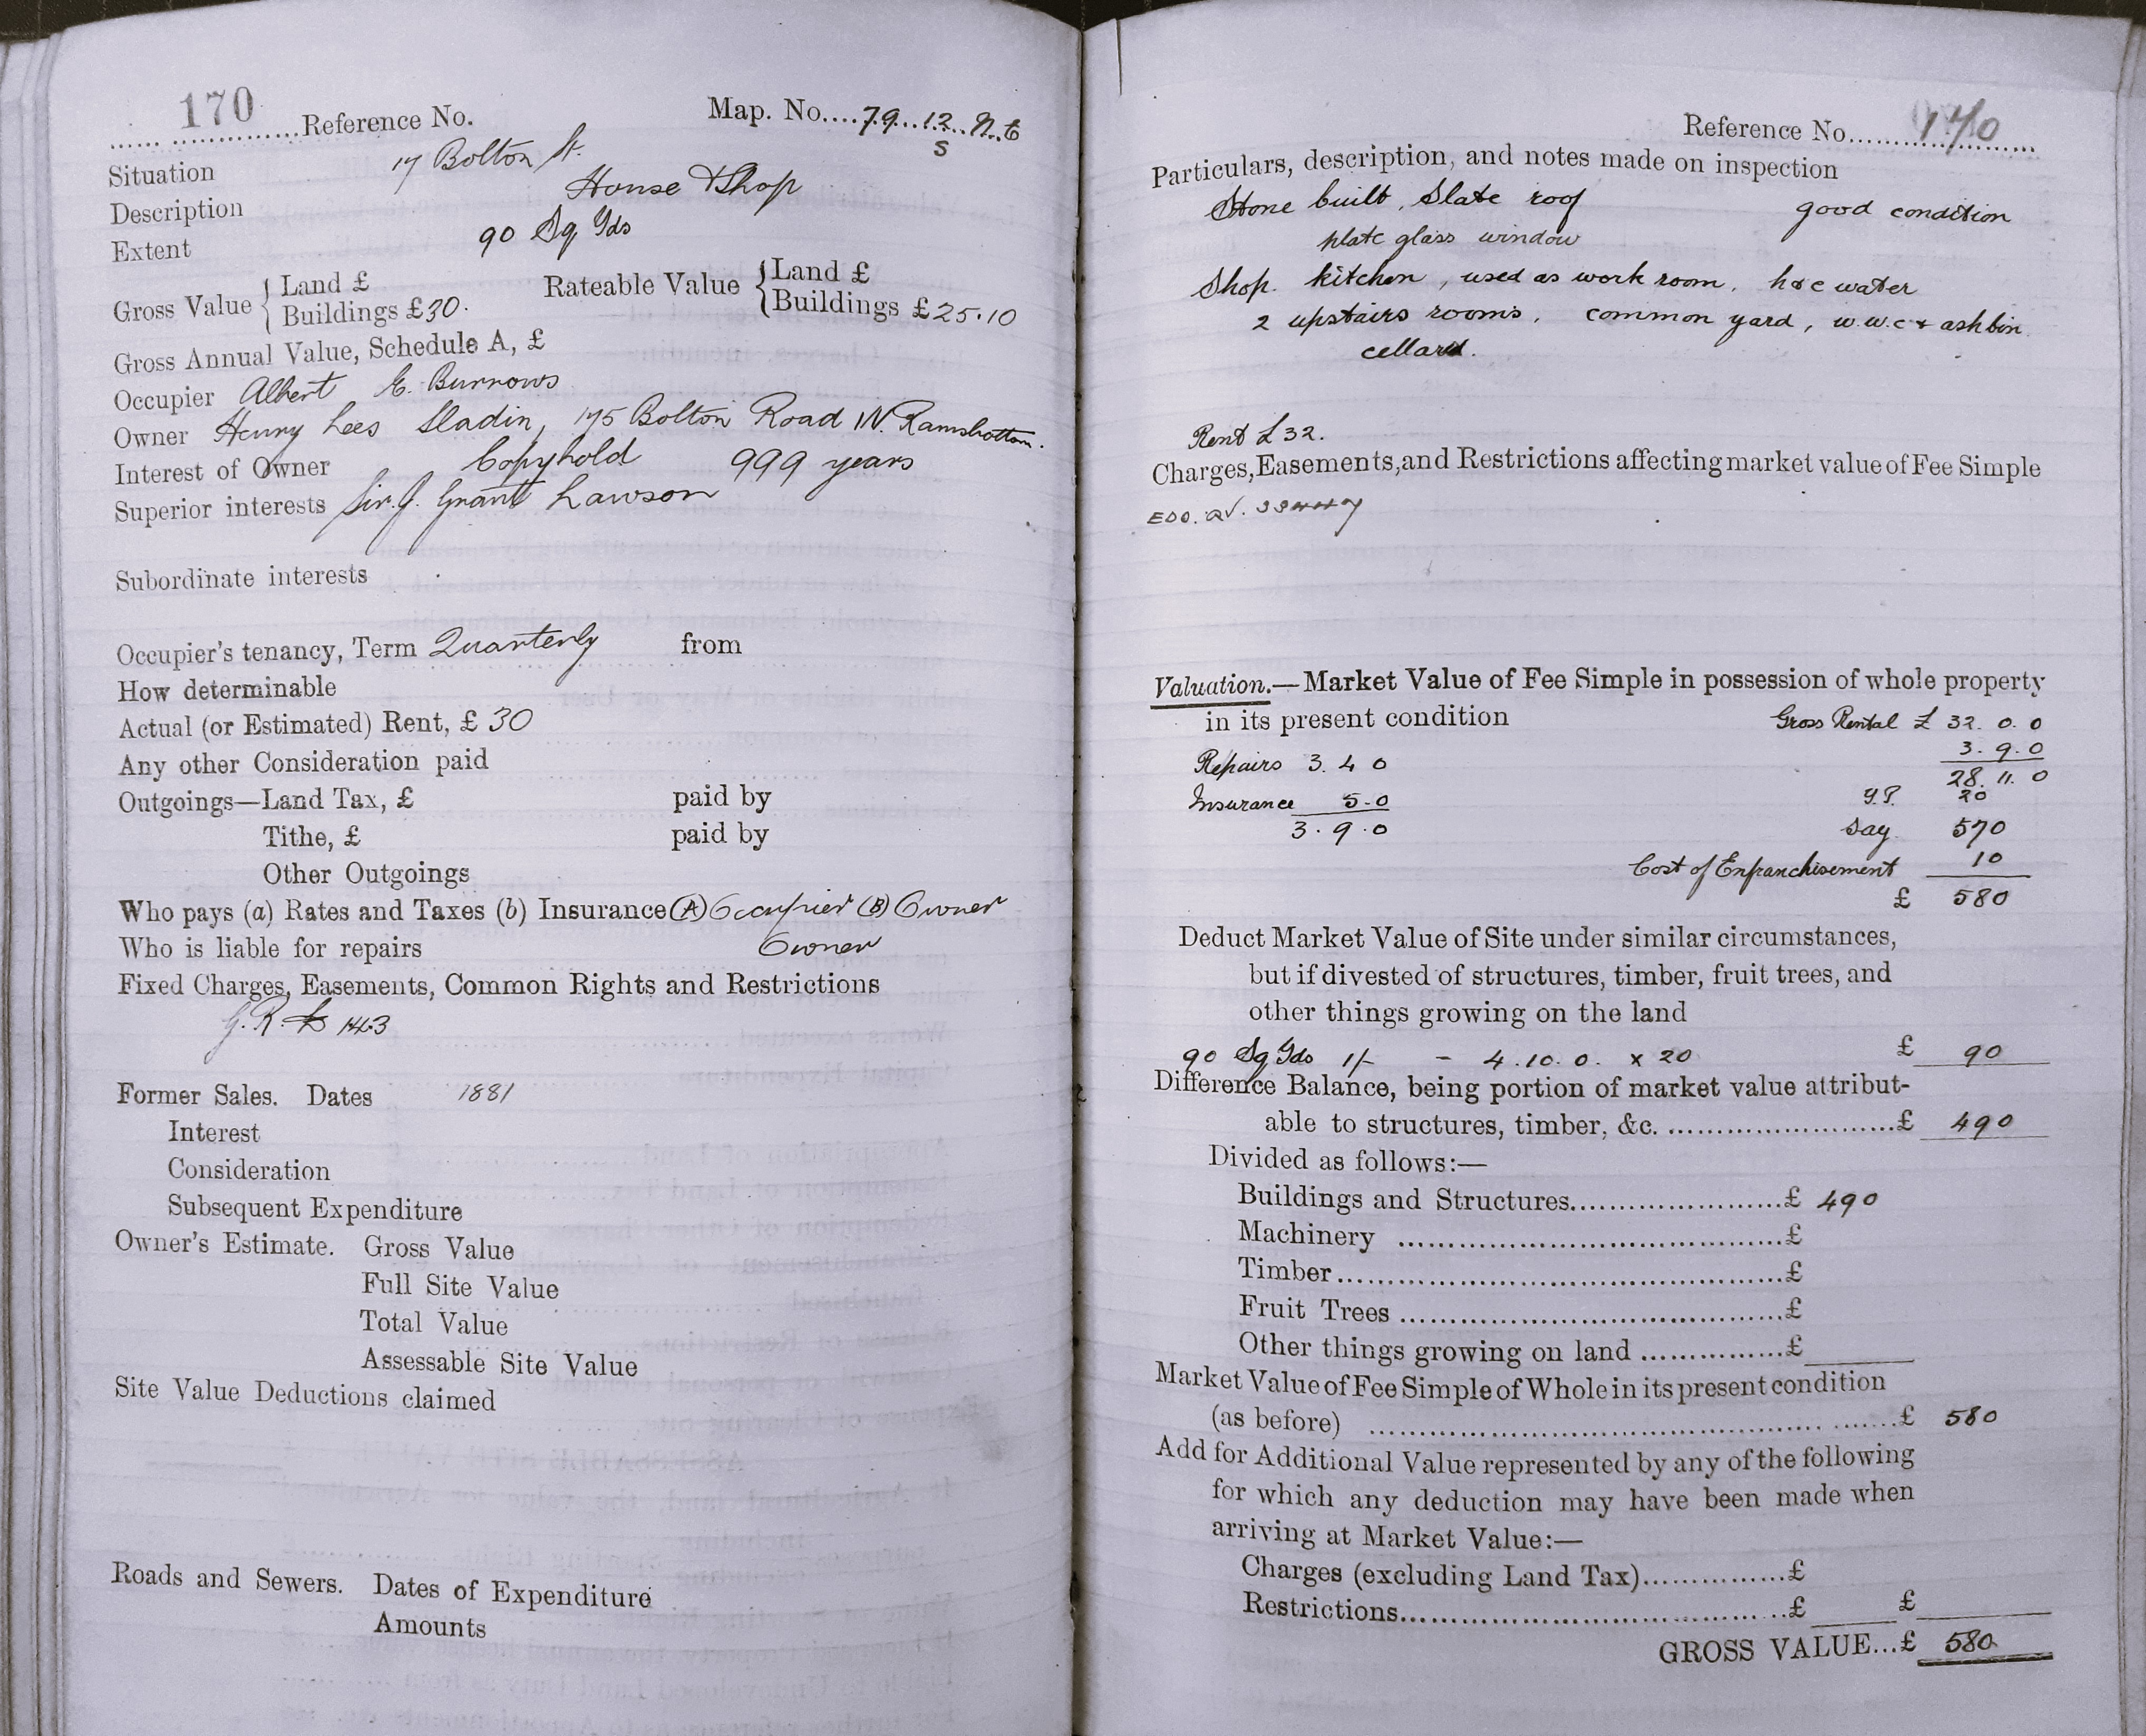 170
Reference No.
Map. No....79..12..N.E
S
Situation 17 Bolton St.
Description House & Shop
Extent 90 Sq Yds
Gross Value { Land £
Buildings £30.
Rateable Value { Land £
Buildings £25.10
Gross Annual Value, Schedule A, £
Occupier Albert E. Burrows
Owner Henry Lees Sladin, 175 Bolton Road W. Ramsbottom.
Interest of Owner Copyhold 999 years
Superior interests Sir. J. Grant Lawson
Subordinate interests
Occupier's tenancy, Term Quarterly from
How determinable
Actual (or Estimated) Rent, £ 30
Any other Consideration paid
Outgoings—Land Tax, £ paid by
Tithe, £ paid by
Other Outgoings
Who pays (a) Rates and Taxes (b) Insurance (A) Occupier (B) Owner
Who is liable for repairs Owner
Fixed Charges, Easements, Common Rights and Restrictions
G.R.
Former Sales. Dates 1881
Interest
Consideration
Subsequent Expenditure
Owner's Estimate. Gross Value
Full Site Value
Total Value
Assessable Site Value
Site Value Deductions claimed
Roads and Sewers. Dates of Expenditure
Amounts
Reference No......170
Particulars, description, and notes made on inspection
Stone built, Slate roof good condition
plate glass window
Shop. kitchen, used as work room, h & c water
2 upstairs rooms, common yard, w.w.c & ashbin
cellar.
Rent £32.
Charges, Easements, and Restrictions affecting market value of Fee Simple
Valuation.—Market Value of Fee Simple in possession of whole property
in its present condition Gross Rental £ 32. 0. 0
3. 9. 0
Repairs 3. 4 0 28. 11. 0
Insurance 5. 0 Y.P. 20
3. 9. 0 Say 570
Cost of Enfranchisement 10
£ 580
Deduct Market Value of Site under similar circumstances,
but if divested of structures, timber, fruit trees, and
other things growing on the land
90 Sq Yds 1/- – 4. 10. 0. x 20 £ 90
Difference Balance, being portion of market value attribut-
able to structures, timber, &c. ........................£ 490
Divided as follows:—
Buildings and Structures......................£ 490
Machinery ........................................£
Timber..............................................£
Fruit Trees .......................................£
Other things growing on land ...............£
Market Value of Fee Simple of Whole in its present condition
(as before) ........................................................£ 580
Add for Additional Value represented by any of the following
for which any deduction may have been made when
arriving at Market Value:—
Charges (excluding Land Tax)...............£
Restrictions.......................................£ £
GROSS VALUE...£ 580